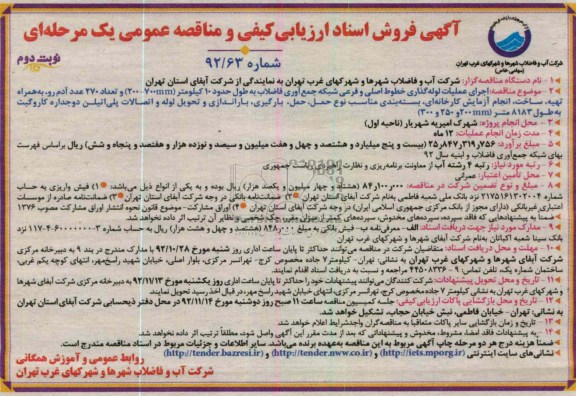 آگهی فروش اسناد ارزیابی‌کیفی و مناقصه عمومی یک مرحله‌ای
شماره ۹۲/۶۳
نوبت دوم
شرکت آب و فاضلاب شهرها و شهرکهای غرب تهران
(سهامی خاص)
۱ - نام دستگاه مناقصه‌گزار: شرکت آب و فاضلاب شهرها و شهرکهای غرب تهران به نمایندگی از شرکت آبفای استان تهران
۲ - موضوع مناقصه: اجرای عملیات لوله‌گذاری خطوط اصلی و فرعی شبکه جمع‌آوری فاضلاب به طول حدود ۱۰ کیلومتر (۷۰۰mm-۲۰۰) و تعداد ۲۷۰ عدد آدم رو، به‌همراه
تهیه، ساخت، انجام آزمایش کارخانه‌ای، بسته‌بندی مناسب نوع حمل، حمل، بارگیری، باراندازی و تحویل لوله و اتصالات پلی‌اتیلن دوجداره کاروگیت
به‌طول ۸۱۸۳ متر (۲۰۰mm و ۲۵۰ و ۳۰۰)
۳ - محل انجام پروژه: شهرک امیریه شهریار (ناحیه اول)
۴ - مدت زمان انجام عملیات: ۱۲ ماه
۵ - مبلغ برآورد: ۲۵٫۸۴۷٫۳۱۹٫۷۵۶ (بیست و پنج میلیارد و هشتصد و چهل و هفت میلیون و سیصد و نوزده هزار و هفتصد و پنجاه و شش) ریال براساس فهرست
بهای شبکه جمع‌آوری فاضلاب و ابنیه سال ۹۲
۶ - رتبه مورد نیاز: رتبه ۴ رشته آب از معاونت برنامه‌ریزی و نظارت جمهوری
۷ - محل تأمین اعتبار: عمرانی
۸ - مبلغ و نوع تضمین شرکت در مناقصه: (هشتاد و چهار میلیون و یکصد هزار) ریال بوده و به یکی از انواع ذیل می‌باشد: ۱) فیش واریزی به حساب
شماره ۲۱۷۵۱۶۱۳۰۲۰۰۴ نزد بانک ملی شعبه فاطمی به‌نام شرکت آبفای استان تهران ۲) ضمانتنامه بانکی در وجه شرکت آبفای استان تهران ۳) ضمانتنامه صادره از موسسات
اعتباری غیربانکی (دارای مجوز از بانک مرکزی جمهوری اسلامی ایران) در وجه شرکت آبفای استان تهران ۴) اوراق مشارکت. موضوع قانون نحوه انتشار اوراق مشارکت مصوب ۱۳۷۶
ضمناً به پیشنهادهایی که فاقد سپرده، سپرده‌های مخدوش، سپرده‌های کمتر از میزان مقرر، چک شخصی و نظایر آن ترتیب اثر داده نخواهد شد.
۹ - مدارک مورد نیاز جهت دریافت اسناد: الف - معرفی‌نامه ب- فیش بانکی به مبلغ ۸۲۸٫۰۰۰ (هشتصد و چهل و هشت هزار) ریال به حساب شماره ۱۱۷-۴-۶۰۰۰۰۰۰-۳ نزد
بانک سینا شعبه گلباتان به‌نام شرکت آبفای شهرها و شهرکهای غرب تهران
۱۰ - مهلت و محل دریافت اسناد: متقاضیان شرکت در مناقصه می‌توانند حداکثر تا پایان ساعت اداری روز شنبه مورخ ۹۲/۱۰/۲۸ با مدارک مندرج در بند ۹ به دبیرخانه مرکزی
شرکت آبفای شهرها و شهرکهای غرب تهران به نشانی: تهران- کیلومتر ۷ جاده مخصوص کرج- تهرانسر مرکزی، بلوار اصلی، خیابان شهید راسخ‌مهر، انتهای کوچه یکم غربی،
ساختمان شماره یک، تلفن تماس: ۹ - ۴۴۵۰۸۳۲۶ مراجعه و نسبت به دریافت اسناد اقدام نمایند.
۱۱ - تاریخ و محل تحویل پیشنهادات: شرکت کنندگان می‌توانند پیشنهادات خود را حداکثر تا پایان ساعت اداری روز یکشنبه مورخ ۹۲/۱۱/۱۳ به دبیرخانه مرکزی شرکت آبفای شهرها
و شهرکهای غرب تهران به نشانی کیلومتر ۷ جاده مخصوص کرج، تهرانسر مرکزی، انتهای خیابان شهید راسخ مهر، در قبال اخذ رسید تحویل نمایند.
۱۲ - تاریخ و محل بازگشایی پاکات ارزیابی‌کیفی: جلسه کمیسیون مناقصه ساعت ۱۱ صبح روز دوشنبه مورخ ۹۲/۱۱/۱۴ در محل دفتر ذیحسابی شرکت آبفای استان تهران
به نشانی: تهران- خیابان فاطمی، نبش خیابان حجاب، تشکیل خواهد شد.
۱۳ - تاریخ و زمان بازگشایی سایر پاکات متعاقباً به مناقصه‌گران واجدشرایط اعلام خواهد شد.
۱۴ - به پیشنهادات فاقد امضا، مشروط، مخدوش و پیشنهاداتی که بعد از مدت مقرر این آگهی واصل شود، مطلقاً ترتیب اثر داده نخواهد شد.
ضمناً هزینه درج هر دو مرحله چاپ آگهی مربوط به این مناقصه به‌عهده برنده می‌باشد. سایر اطلاعات و جزئیات مربوط در اسناد مناقصه مندرج است.
نشانی‌های سایت اینترنتی (http://iets.mporg.ir) و (http://tender.nww.co.ir) و (http://tender.bazresi.ir)
روابط عمومی و آموزش همگانی
شرکت آب و فاضلاب شهرها و شهرکهای غرب تهران